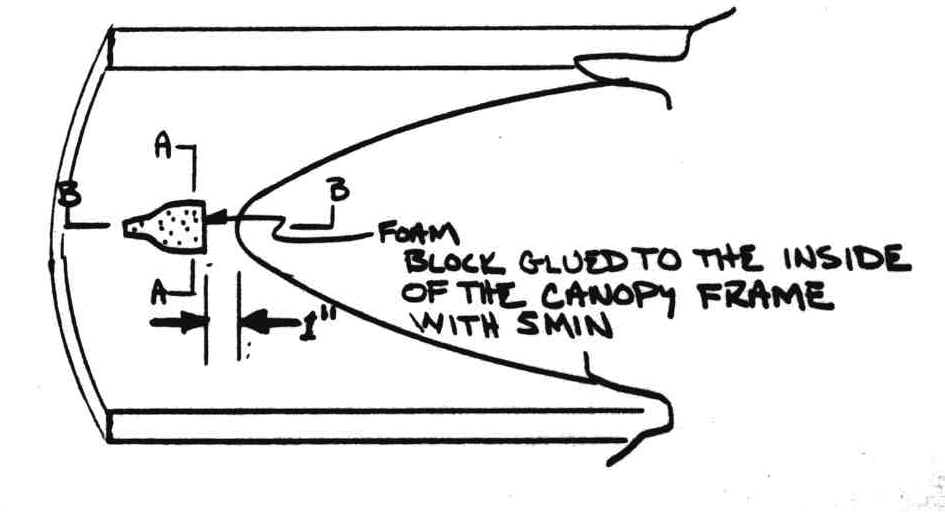 A
B
B
FOAM
BLOCK GLUED TO THE INSIDE
OF THE CANOPY FRAME
A
1"
WITH 5MIN